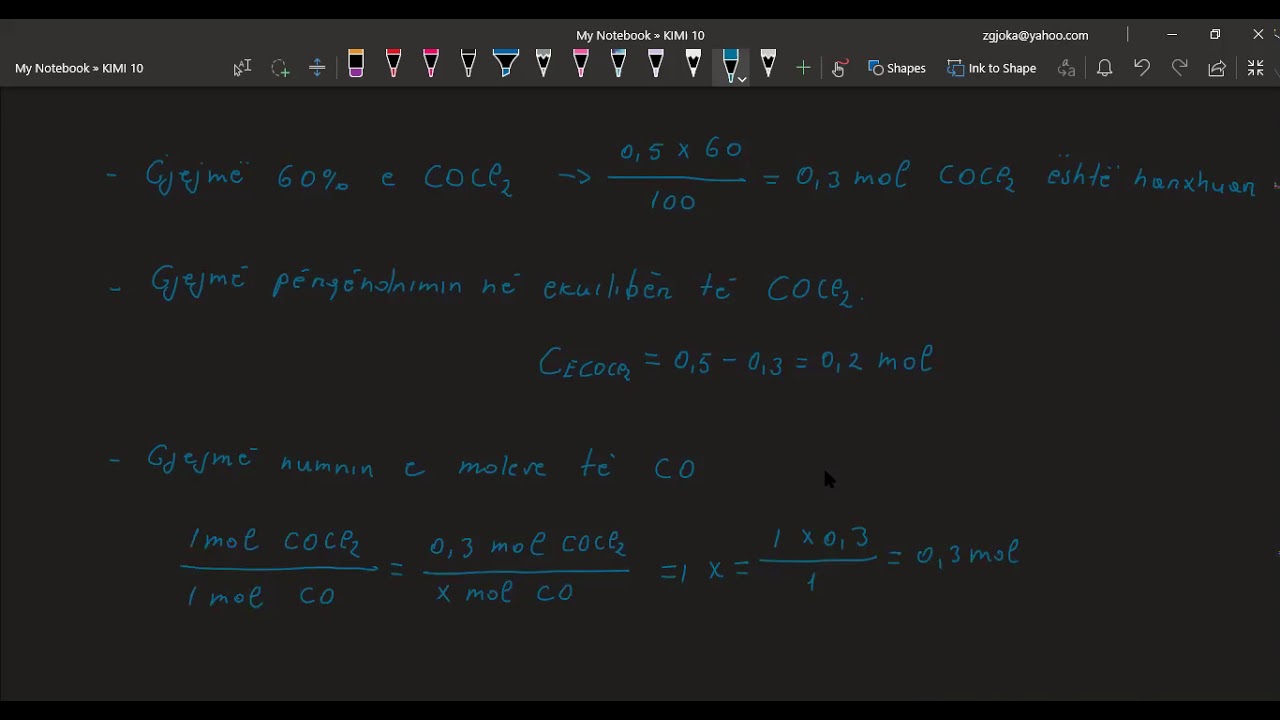 My Notebook » KIMI 10
zgjoka@yahoo.com
My Notebook » KIMI 10
Shapes
Ink to Shape
- Gjejmë 60% e COCl2 -> 0,5 x 60 / 100 = 0,3 mol COCl2 është harxhuar
- Gjejmë përqëndrimin në ekuilibër të COCl2.
CECOCl2 = 0,5 - 0,3 = 0,2 mol
- Gjejmë numrin e moleve të CO
1 mol COCl2 / 1 mol CO = 0,3 mol COCl2 / x mol CO => x = 1 x 0,3 / 1 = 0,3 mol